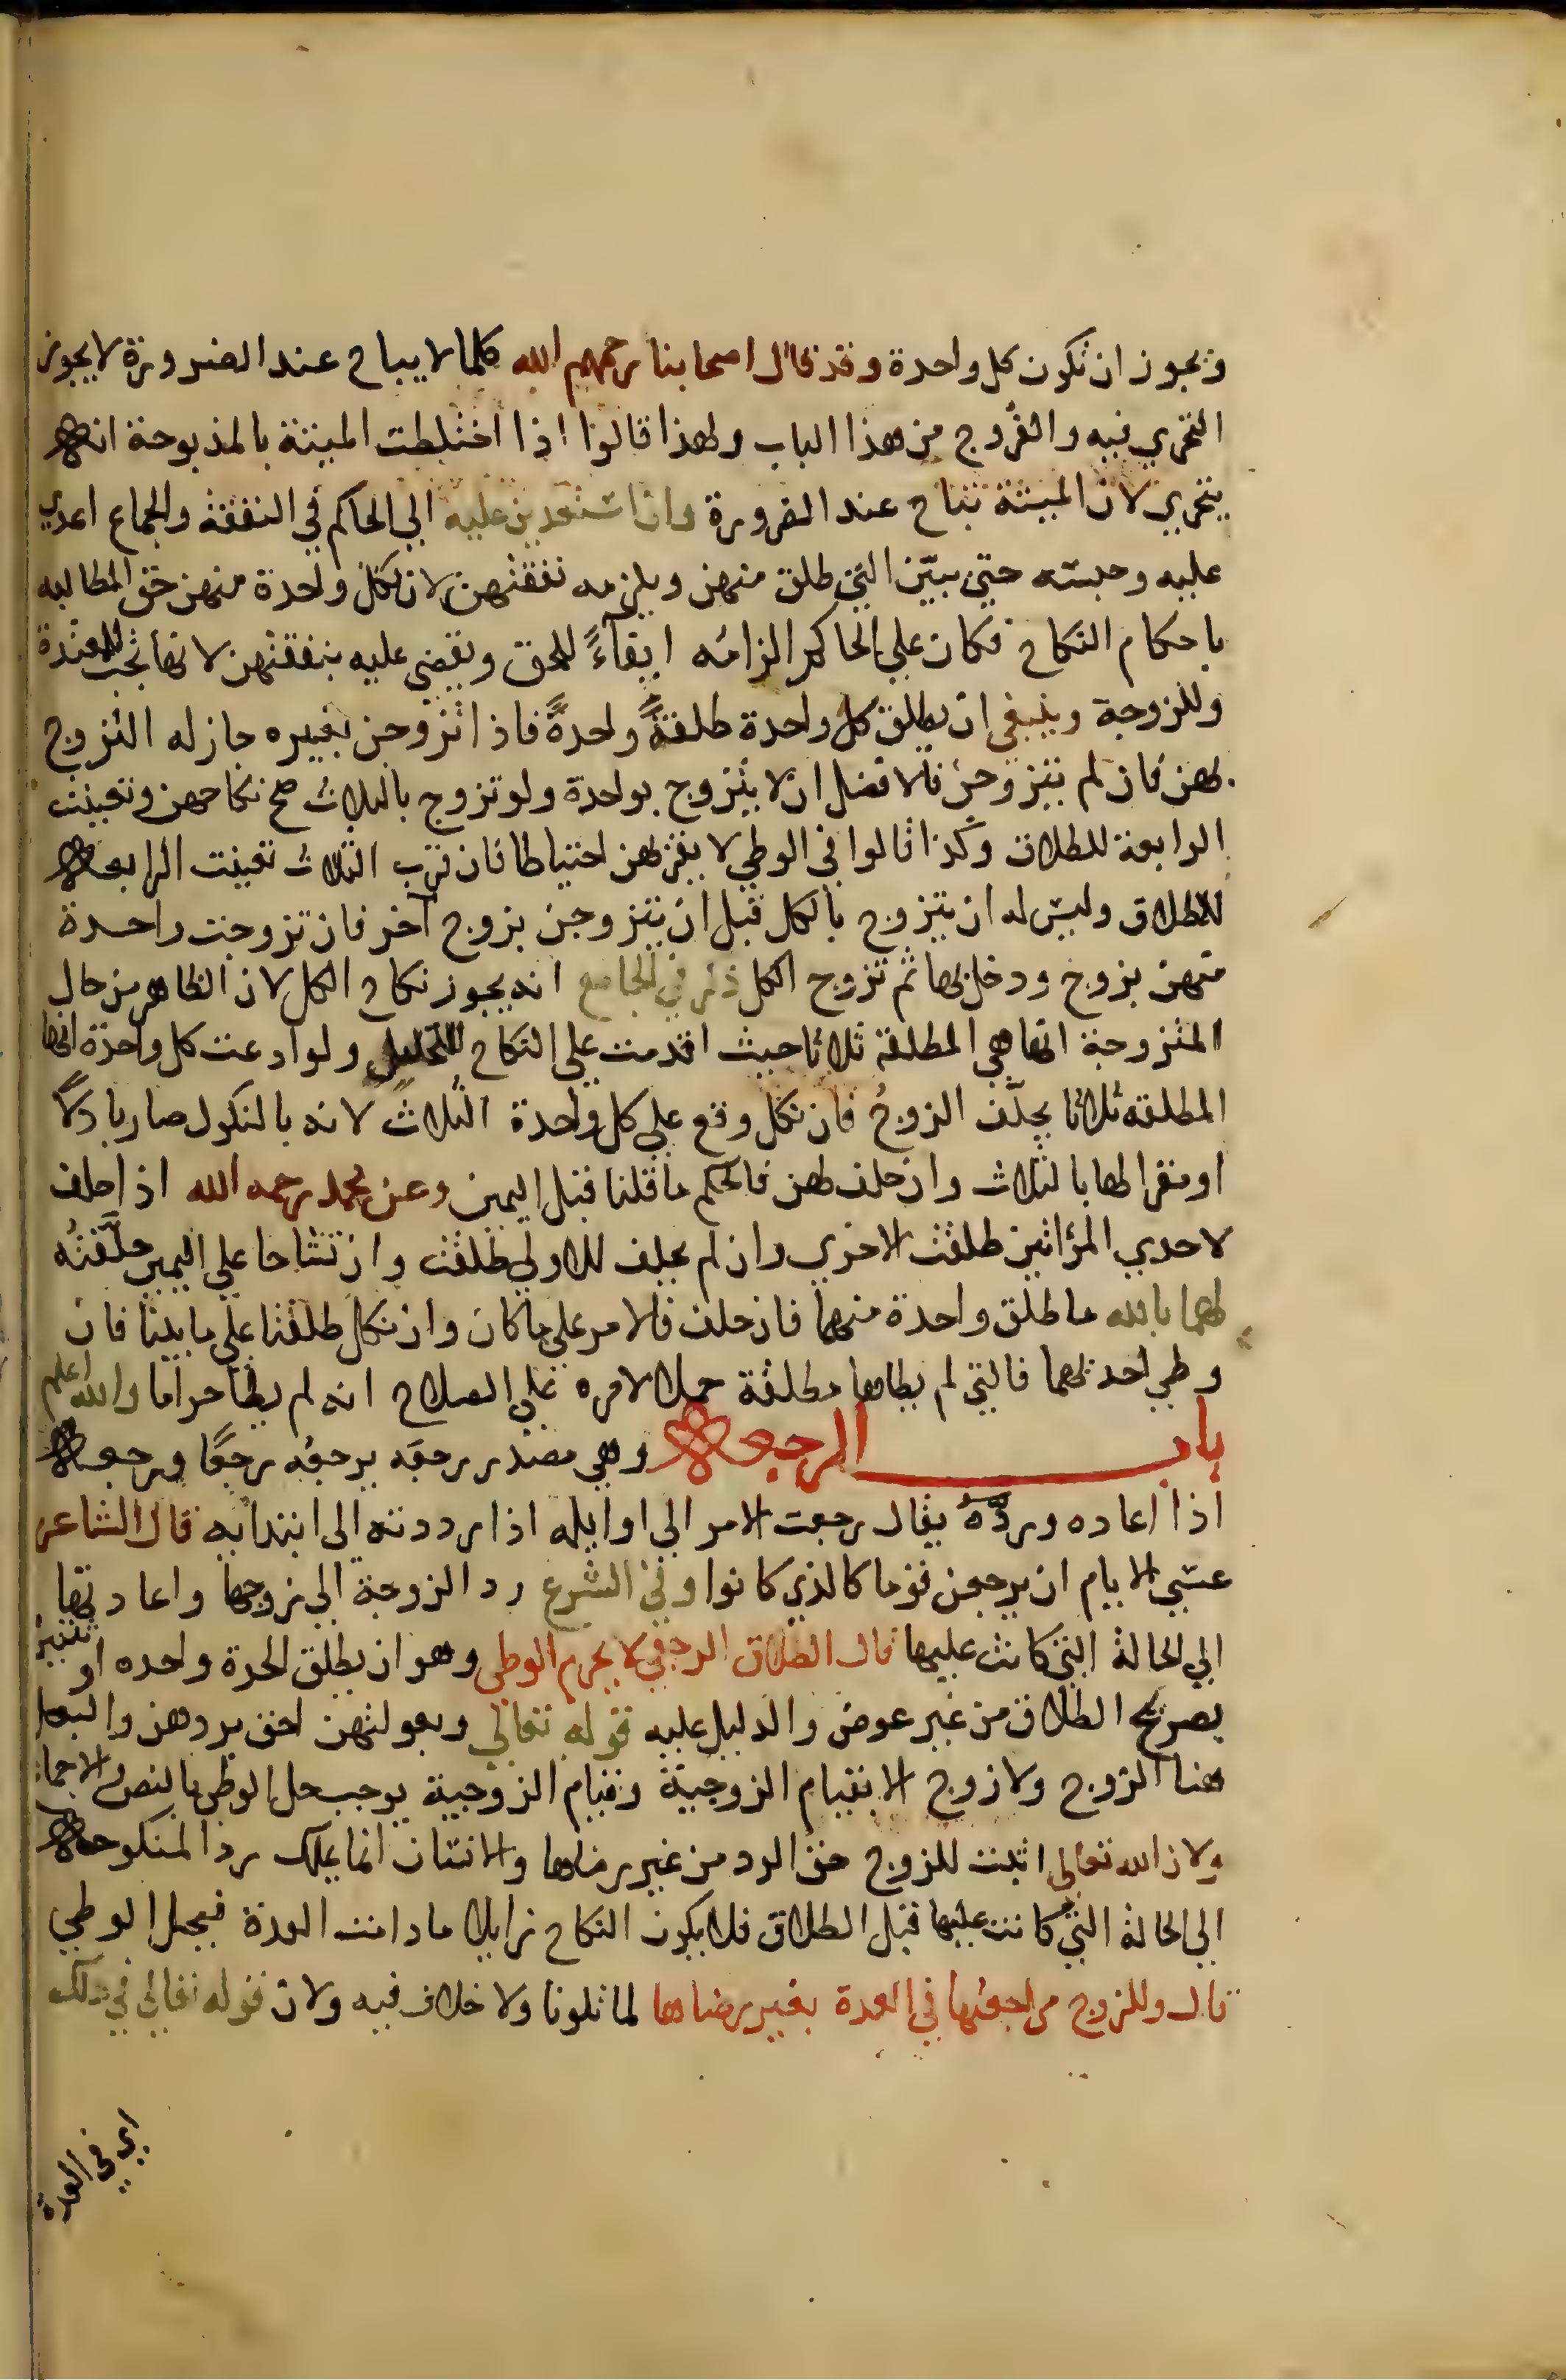 ويجوز ان تكون كل واحدة وقد قال اصحابنا رحمهم الله كلما لا يباح عند الضرورة لا يجوز
التحري فيه والفُروج من هذا الباب ولهذا قالوا اذا اختلطت الميتة بالمذبوحة انه
يتحري لان الميتة تباح عند الضرورة وان استعدين عليه الي الحاكم في النفقة والجماع اعدي
عليه وحبسته حتي يبيّن التي طلق منهن ويلزمه نفقتهن لان لكل واحدة منهن حق المطالبه
باحكام النكاح فكان علي الحاكم الزامُه ابقآءً للحق ويقضي عليه بنفقتهن لانها تجب للمعتدة
وللزوجة وينبغي ان يطلق كل واحدة طلقةً واحدةً فاذا تزوجن بغيره جاز له التزوج
بهن فان لم يتزوجن فالافضل ان لا يتزوج بواحدة ولو تزوج بالثلاث صح نكاحهن وتعينت
الرابعة للطلاق وكذا قالوا في الوطي لا يقربهن احتياطا فان قرب الثلاث تعينت الرابعة
للطلاق وليس له ان يتزوج بالكل قبل ان يتزوجن بزوج آخر فان تزوجت واحدة
منهن بزوج ودخل بها ثم تزوج الكل ذكر في الجامع انه يجوز نكاح الكل لان الظاهر من حال
المتزوجة انها هي المطلقة ثلاثا حيث اقدمت علي النكاح للتحليل ولو ادعت كل واحدة انها
المطلقة ثلاثا يحلّف الزوجُ فان نكل وقع علي كل واحدة الثلاث لانه بالنكول صار باذلًا
او مقرا لها بالثلاث وان حلف لهن فالحكم ما قلنا قبل اليمين وعن محمد رحمه الله اذا حلف
لاحدي المرأتين طلقت الاخري وان لم يحلف للاولي طلقت وان تشاحا علي اليمين حلّفتُه
لهما بالله ما طلق واحدة منهما فان حلف فالامر علي ما كان وان نكل طلقتا علي ما بينا فان
وطي احدىهما فالتي لم يطاها مطلقة حملا لامره علي الصلاح انه لم يطأ حراما والله اعلم
باب الرجعة وهي مصدر رجعَه يرجعُه رجعًا ورجعة
اذا اعاده وردّهُ يقال رجعت الامر الي اوايله اذا رددته الى ابتدايه قال الشاعر
عسي الايام ان يرجعن قوما كالذي كانوا وفي الشرع رد الزوجة الي زوجها واعادتها
الي الحالة التي كانت عليها قال الطلاق الرجعي لا يحرم الوطي وهو ان يطلق الحرة واحده او ثنتين
بصريح الطلاق من غير عوض والدليل عليه قوله تعالي وبعولتهن احق بردهن والبعل
هنا الزوج ولا زوج الا بقيام الزوجية وقيام الزوجية يوجب حل الوطي بالنص والاجماع
ولان الله تعالي اثبت للزوج حق الرد من غير رضاها والانسان انما يملك رد المنكوحة
الي الحالة التي كانت عليها قبل الطلاق فلا يكون النكاح زايلا ما دامت العدة فيحل الوطي
قال وللزوج مراجعتها في العدة بغير رضاها لما تلونا ولا خلاف فيه ولان قوله تعالي في ذلك
اي في العدة